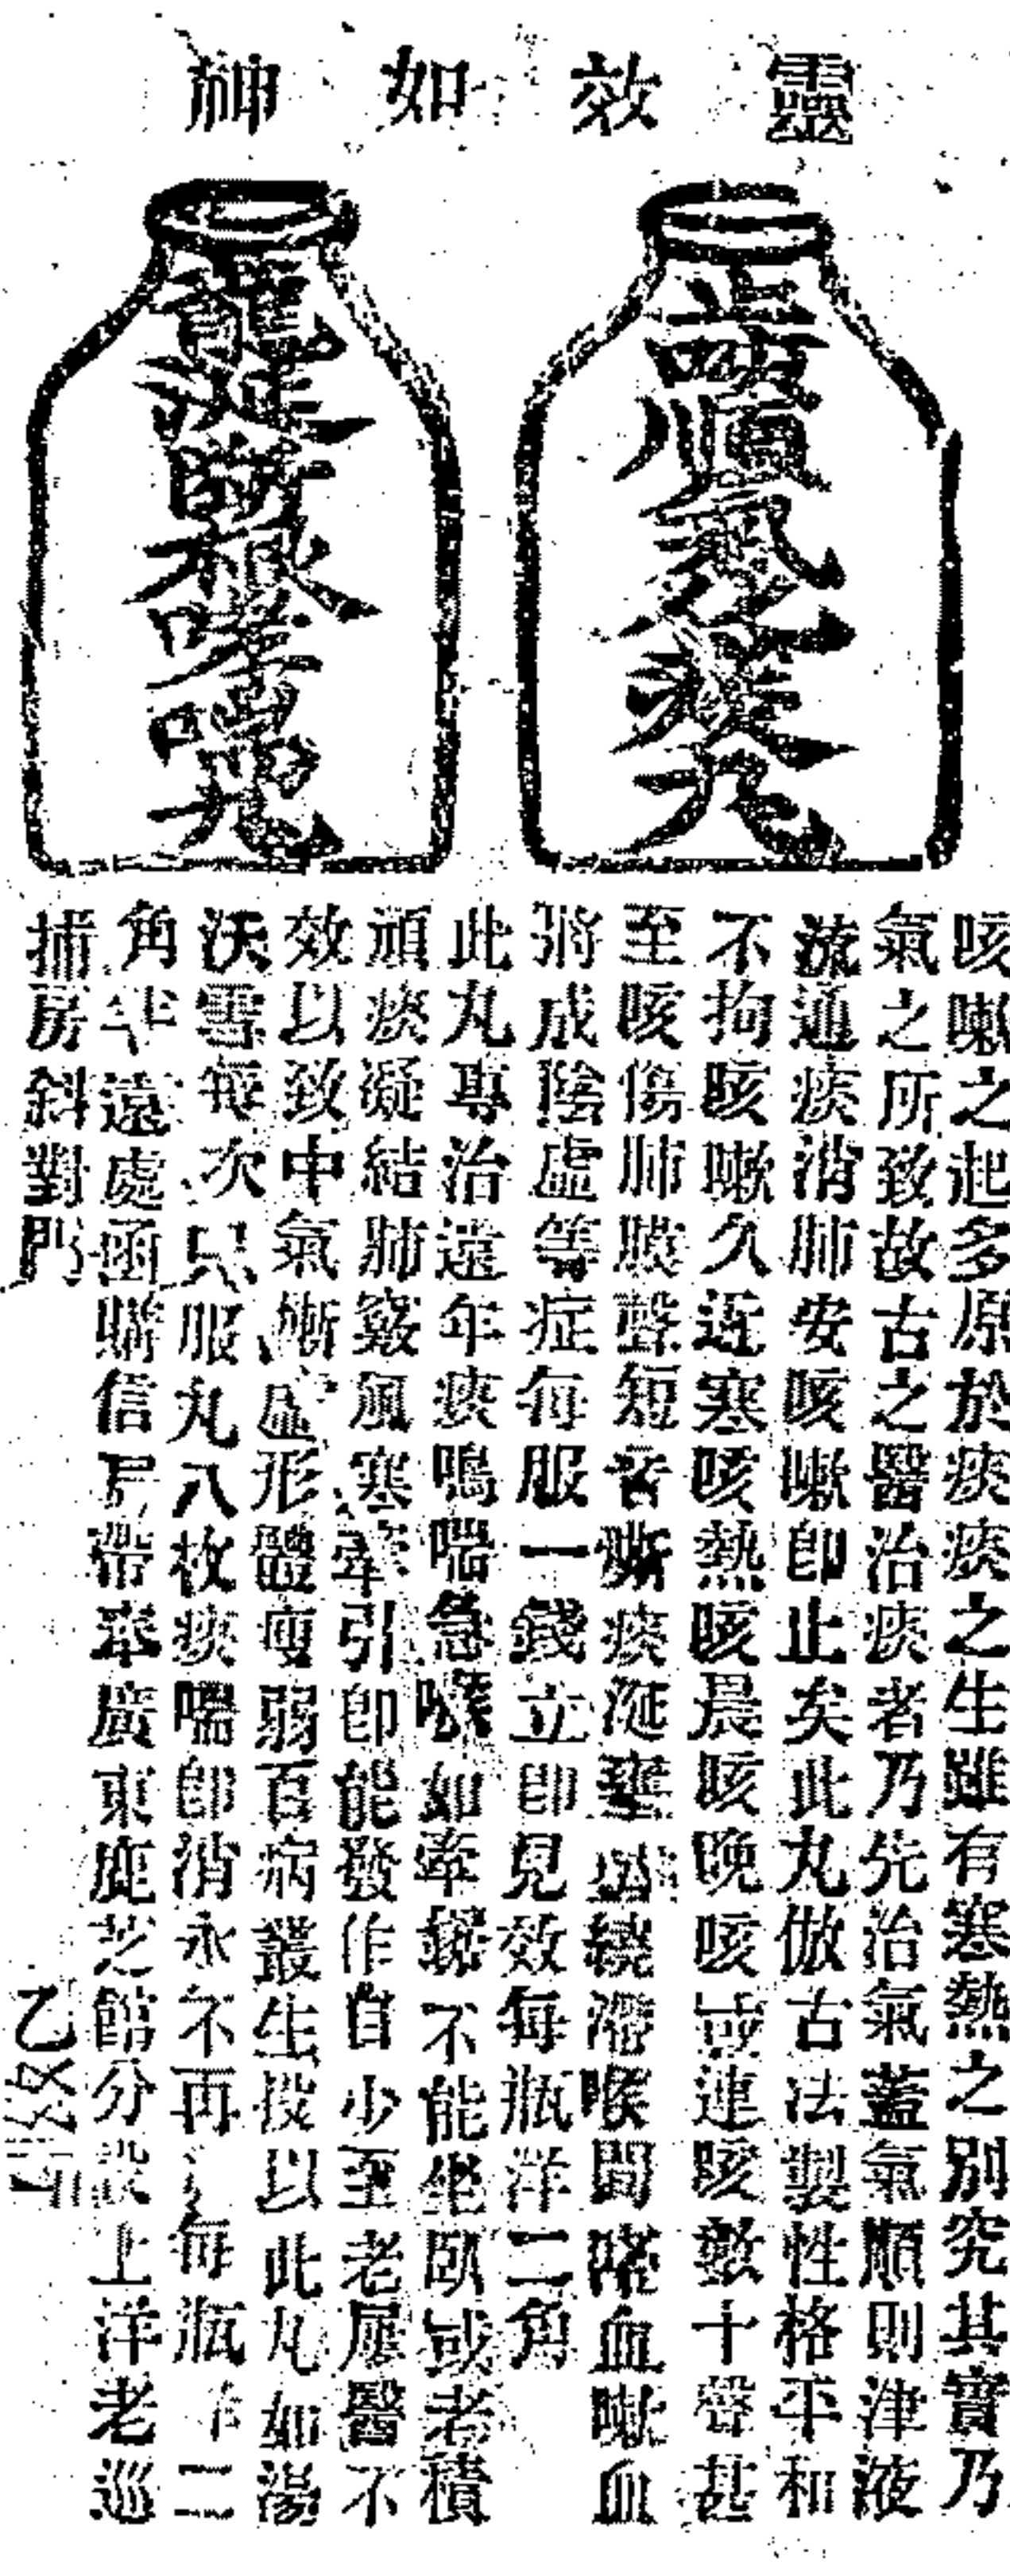 靈效如神
止咳順氣化痰丸
龍涎斷根哮喘丸
咳嗽之起多原於痰痰之生雖有寒熱之別究其實乃
氣之所致故古之醫治痰者乃先治氣蓋氣順則津液
流通痰消肺安咳嗽即止矣此丸倣古法製性格平和
不拘咳嗽久近寒咳熱咳晨咳晚咳或連咳數十聲甚
至咳傷肺膜聲短音嘶痰涎壅盛繞滯喉間咯血嗽血
將成陰虛等症每服一錢立即見效每瓶洋二角
此丸專治遠年痰鳴喘急喉如牽鋸不能坐臥或老積
頑痰凝結肺竅風寒牽引即能發作自少至老屢醫不
效以致中氣漸虛形體瘦弱百病叢生投以此丸如湯
沃雪每次只服丸八枚痰喘即消永不再 每瓶洋二
角半遠處函購信局帶奉廣東鹿芝館分設上洋老巡
捕房斜對門